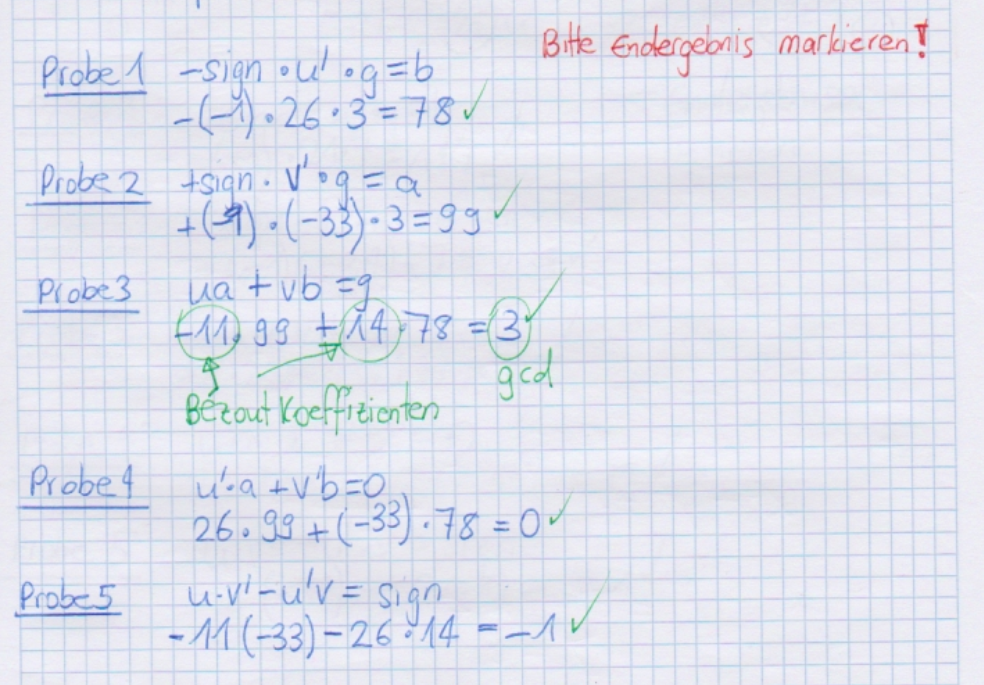 Bitte Endergebnis markieren!
Probe 1 -sign · u' · g = b
-(-1) · 26 · 3 = 78 ✓
Probe 2 +sign · v' · g = a
+(-1) · (-33) · 3 = 99 ✓
Probe 3 ua + vb = g
-11 · 99 + 14 · 78 = 3 ✓
gcd
Bézout Koeffizienten
Probe 4 u' · a + v'b = 0
26 · 99 + (-33) · 78 = 0 ✓
Probe 5 u · v' - u'v = sign
-11(-33) - 26 · 14 = -1 ✓